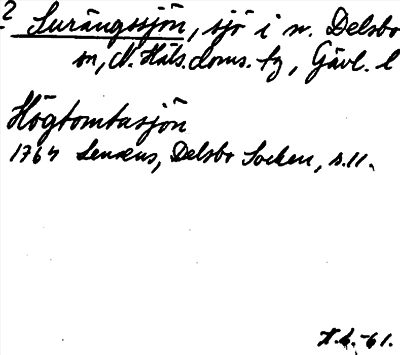 2 Surängssjön, sjö i n. Delsbo
sn, N. Häls. doms. tg, Gävl. l
Högtomtasjön
1764 Lenæus, Delsbo Socken, s.11.
H.L.-61.